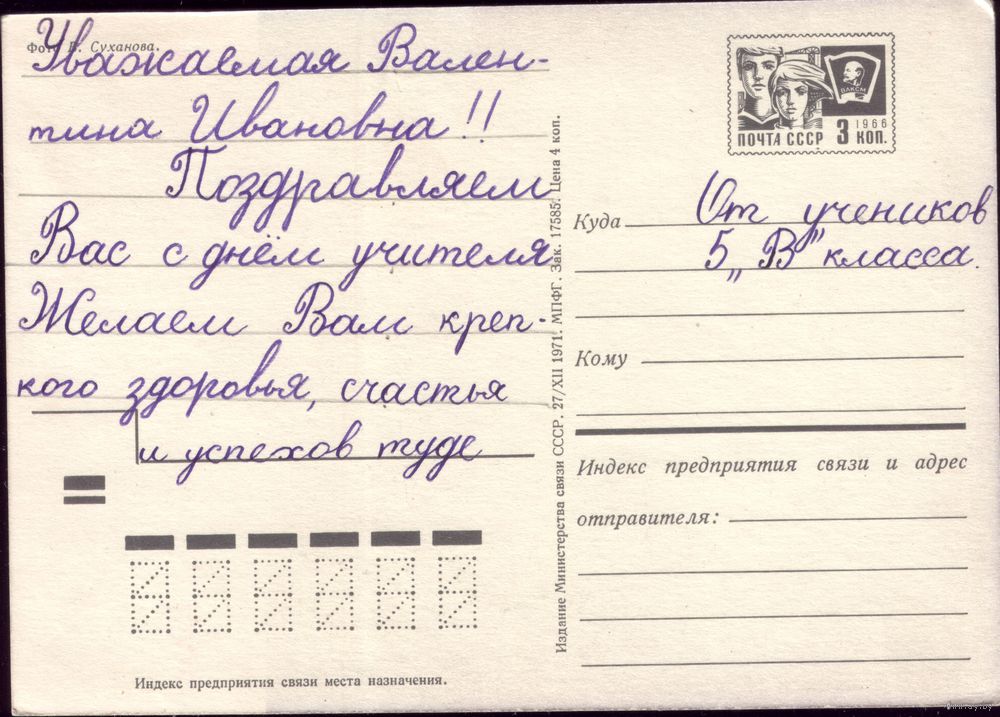 Фото В. Суханова.
Уважаемая Вален-
тина Ивановна!!
Поздравляем
Вас с днём учителя
Желаем Вам креп-
кого здоровья, счастья
и успехов туде
Индекс предприятия связи места назначения.
Издание Министерства связи СССР. 27/XII 1971. МПФГ. Зак. 17585. Цена 4 коп.
ВЛКСМ
1966
ПОЧТА СССР 3 КОП.
Куда От учеников
5 „В" класса.
Кому
Индекс предприятия связи и адрес
отправителя: